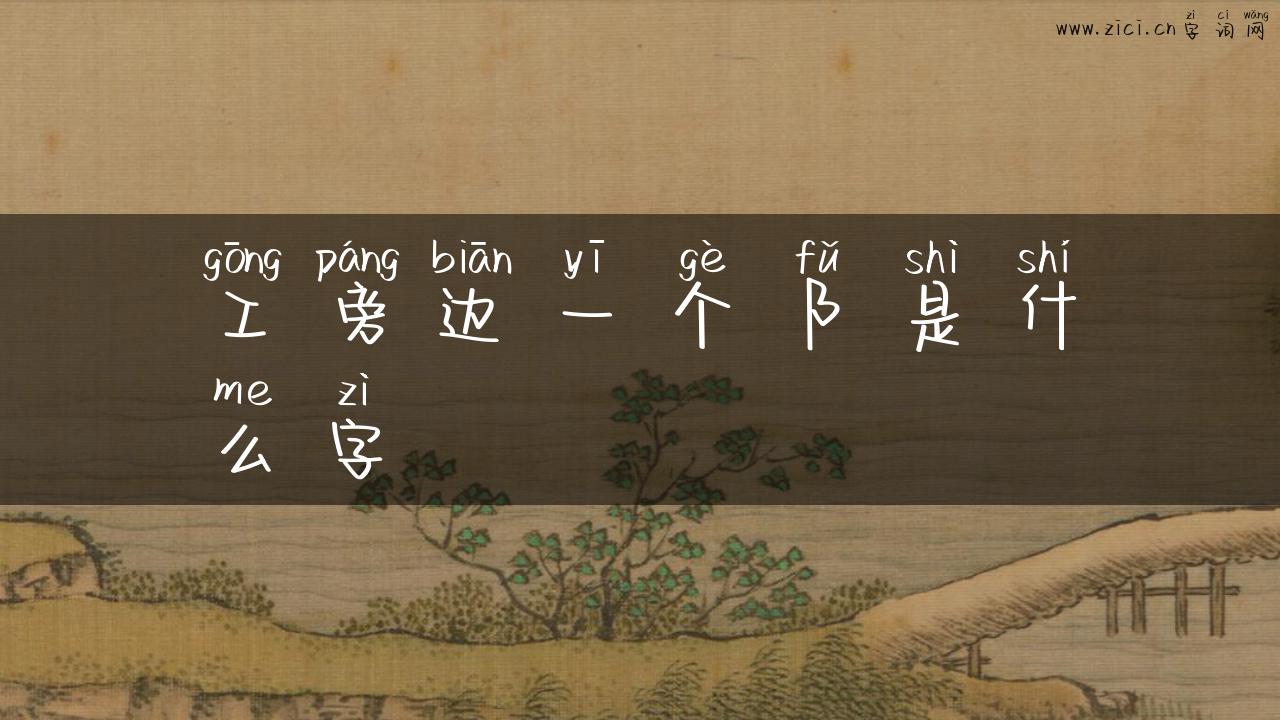 zì cí wǎng
www.zici.cn 字 词 网
gōng páng biān yī gè fǔ shì shí
工 旁 边 一 个 阝 是 什
me zì
么 字